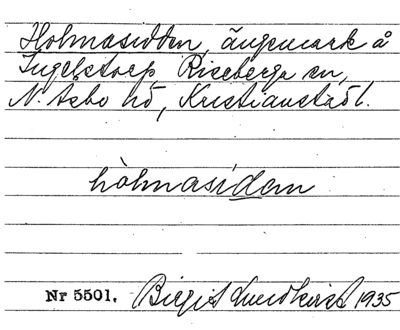 Holmasidan, ängsmark å
Ingelstorp Riseberga sn,
N. Åsbo hd, Kristianstads l.
hòlmasídan
Nr 5501. Birgit Lundkvist 1935